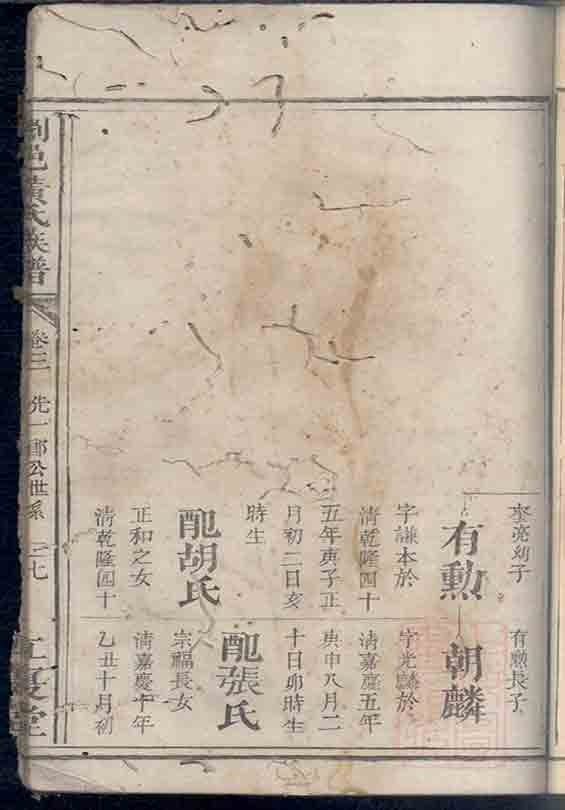 奎亮幼子
有勳
字謙本於
清乾隆四十
五年庚子正
月初二日亥
時生
配胡氏
正和之女
清乾隆四十
有勳長子
朝麟
字光麟於
清嘉慶五年
庚申八月二
十日卯時生
配張氏
宗福長女
清嘉慶十年
乙丑十月初
邑黃氏族譜
卷三
先一郎公世系
七
夏堂